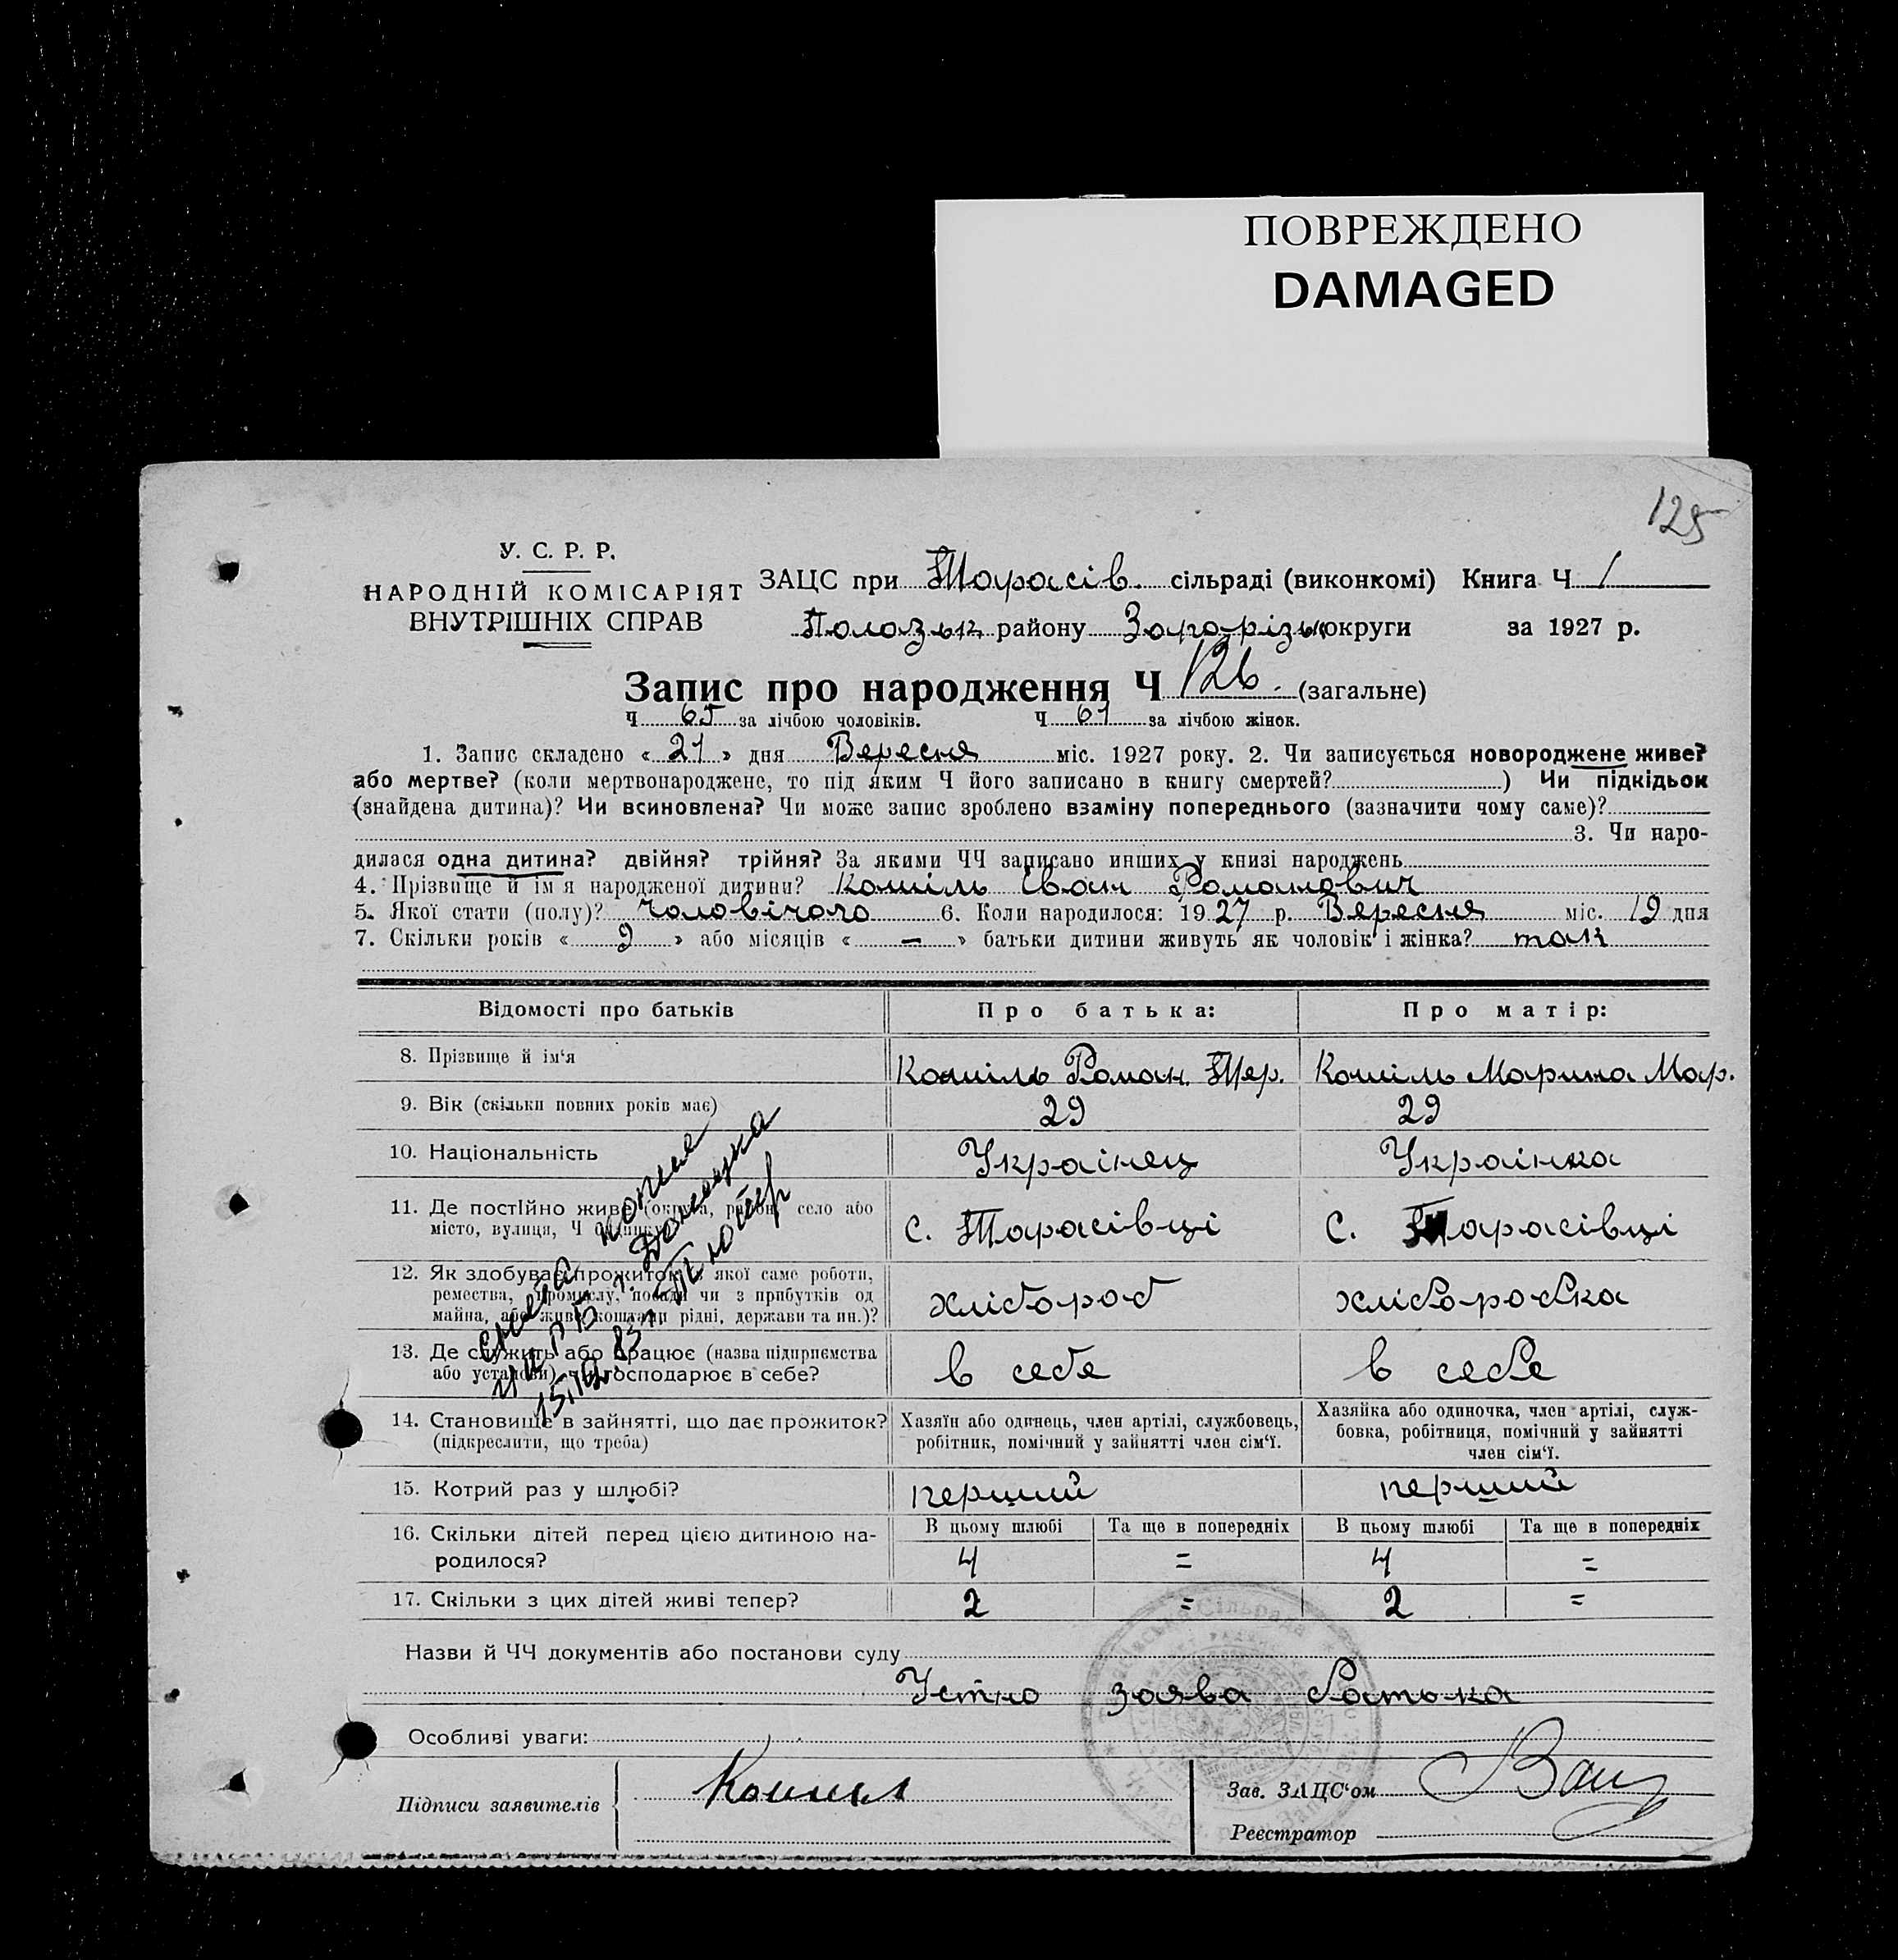 ПОВРЕЖДЕНО
DAMAGED
125
У. С. Р. Р.
НАРОДНІЙ КОМІСАРІЯТ
ВНУТРІШНІХ СПРАВ
ЗАЦС при Тарасів. сільраді (виконкомі) Книга Ч 1
Полозьк району Запорізьк округи за 1927 р.
Запис про народження Ч 126. (загальне)
Ч 65 за лічбою чоловіків. Ч 61 за лічбою жінок.
1. Запис складено « 21 » дня Вересня міс. 1927 року. 2. Чи записується новороджене живе?
або мертве? (коли мертвонароджене, то під яким Ч його записано в книгу смертей? ) Чи підкідьок
(знайдена дитина)? Чи всиновлена? Чи може запис зроблено взаміну попереднього (зазначити чому саме)?
3. Чи наро-
дилася одна дитина? двійня? трійня? За якими ЧЧ записано инших у книзі народжень
4. Прізвище й ім я народженої дитини? Кошіль Іван Романович
5. Якої стати (полу)? Чоловічого 6. Коли народилося: 1927 р. Вересня міс. 19 дня
7. Скільки років « 9 » або місяців « — » батьки дитини живуть як чоловік і жінка? так
Відомості про батьків
Про батька:
Про матір:
8. Прізвище й ім‘я
Кошіль Роман. Тер.
Кошіль Марина Мар.
9. Вік (скільки повних років має)
29
29
10. Національність
Українец
Українка
11. Де постійно живе (округа, район, село або
місто, вулиця, Ч будинку)
с. Тарасівці
с. Тарасівці
12. Як здобуває прожиток з якої саме роботи,
ремества, промислу, посади чи з прибутків од
майна, або живе коштами рідні, держави та ин.)?
хлібороб
хліборобка
13. Де служить або працює (назва підприємства
або установи), чи господарює в себе?
в себе
в себе
14. Становище в зайнятті, що дає прожиток?
(підкреслити, що треба)
Хазяїн або одинець, член артілі, службовець,
робітник, помічний у зайнятті член сім‘ї.
Хазяйка або одиночка, член артілі, служ-
бовка, робітниця, помічний у зайнятті
член сім‘ї.
15. Котрий раз у шлюбі?
перший
перший
16. Скільки дітей перед цією дитиною на-
родилося?
В цьому шлюбі
Та ще в попередніх
В цьому шлюбі
Та ще в попередніх
4 = 4 =
17. Скільки з цих дітей живі тепер?
2 = 2 =
Назви й ЧЧ документів або постанови суду
Устно заява батька
Особливі уваги:
Підписи заявителів
Кошил
Зав. ЗАЦС‘ом
Реєстратор